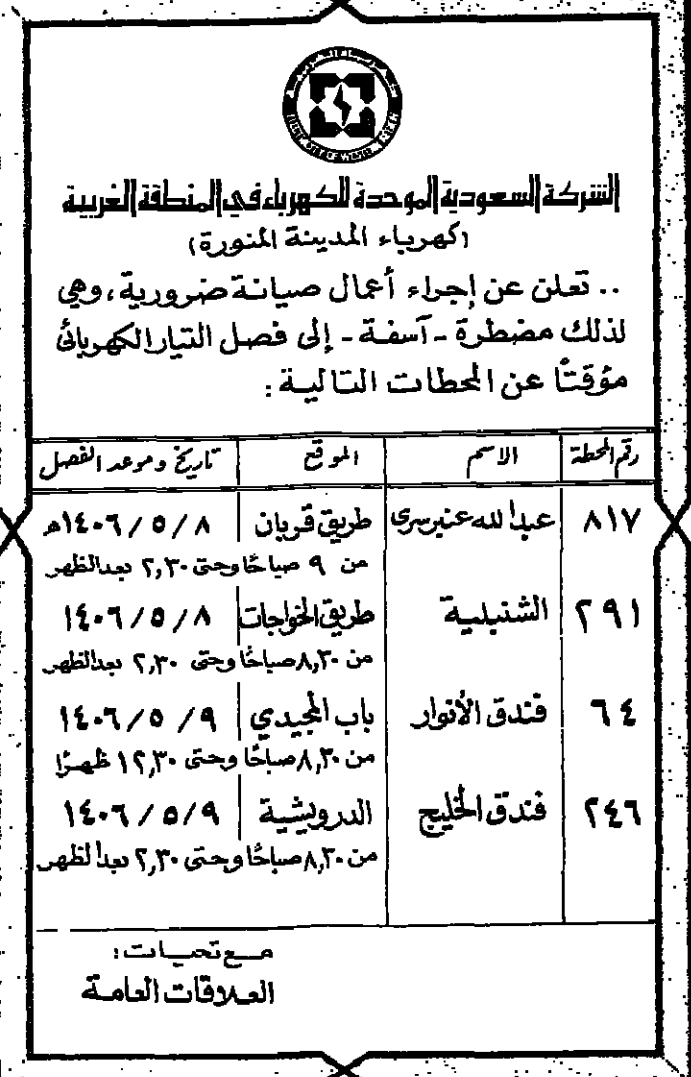 الشركة السعودية الموحدة للكهرباء في المنطقة الغربية
(كهرباء المدينة المنورة)
.. تعلن عن إجراء أعمال صيانة ضرورية، وهي
لذلك مضطرة - آسفة - إلى فصل التيار الكهربائي
مؤقتًا عن المحطات التالية :
رقم المحطة الاسم الموقع تاريخ وموعد الفصل
٨١٧ عبدالله عنبرسرى طريق قربان ٨ / ٥ / ١٤٠٦هـ
من ٩ صباحًا وحتى ٢,٣٠ بعد الظهر
٢٩١ الشنبلية طريق الخواجات ٨ / ٥ / ١٤٠٦
من ٨,٣٠ صباحًا وحتى ٢,٣٠ بعد الظهر
٦٤ فندق الأنوار باب المجيدي ٩ / ٥ / ١٤٠٦
من ٨,٣٠ صباحًا وحتى ١٢,٣٠ ظهرًا
٢٤٦ فندق الخليج الدرويشية ٩ / ٥ / ١٤٠٦
من ٨,٣٠ صباحًا وحتى ٢,٣٠ بعد الظهر
مع تحيات :
العلاقات العامة